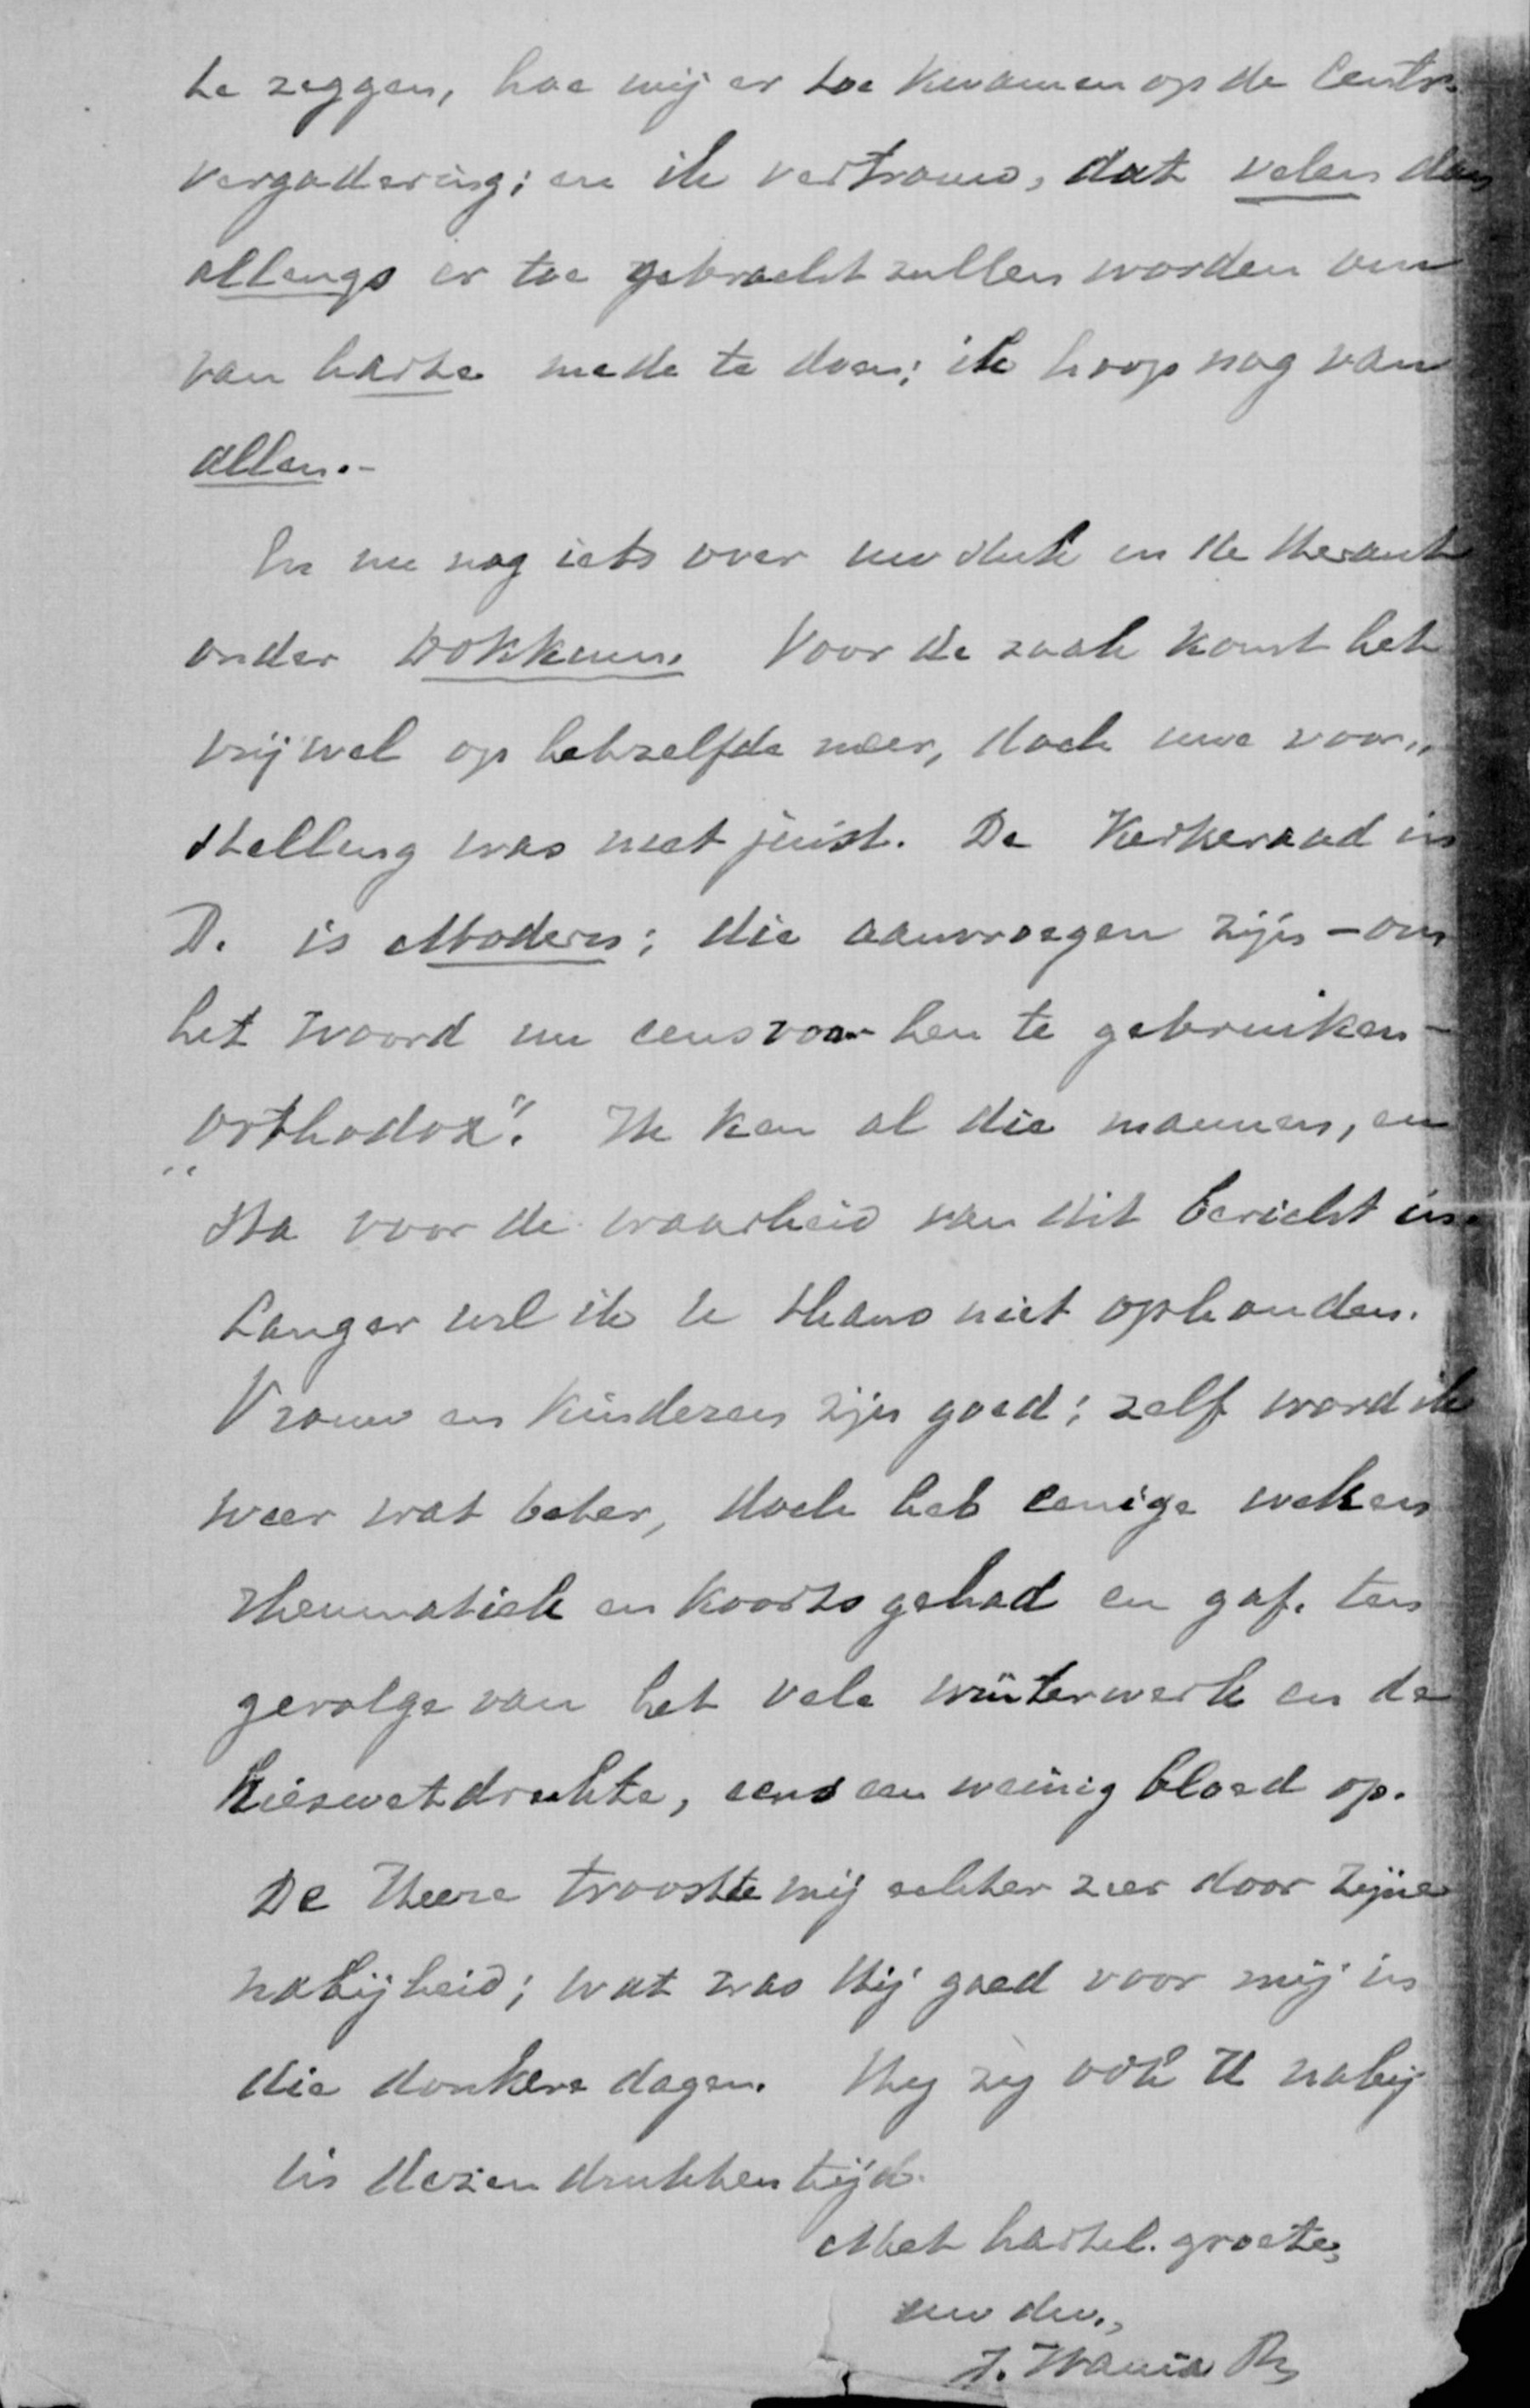 te zeggen, hoe wij er toe kwamen op de Centr.
vergadering; en ik vertrouw, dat velen dan
allengs er toe gebracht zullen worden om
van harte mede te doen; ik hoop nog van
allen.-
En nu nog iets over uw stuk in de Heraut
onder Dokkum. Voor de zaak komt het
vrijwel op hetzelfde neer, doch uwe voor„
stelling was niet juist. De Kerkeraad in
D. is Modern; die aanvroegen zijn - om
het woord nu eens voor hen te gebruiken -
„orthodox". Ik ken al die mannen, en
sta voor de waarheid van dit bericht in.
Langer wil ik U thans niet ophouden.
Vrouw en Kinderen zijn goed; zelf word ik
weer wat beter, doch heb eenige weken
rheumatiek en koorts gehad en gaf, ten
gevolge van het vele winterwerk en de
Kieswetdrukte, eens een weinig bloed op.
De Heere troostte mij echter zeer door zijne
nabijheid; wat was Hij goed voor mij in
die donkere dagen. Hij zij ook U nabij
in dezen drukken tijd.
Met hartel. groete,
uw dw.,
J. Wania Pz